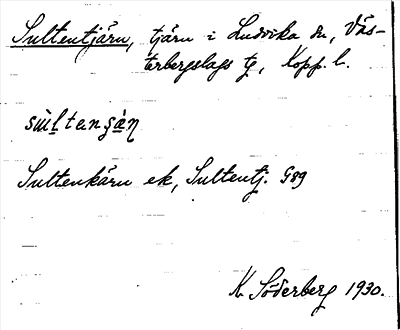 Sultentjärn, tjärn i Ludvika sn, Väs-
terbergslags tg, Kopp. l.
Sultenkärn ek, Sultentj. G89
K. Söderberg 1930.